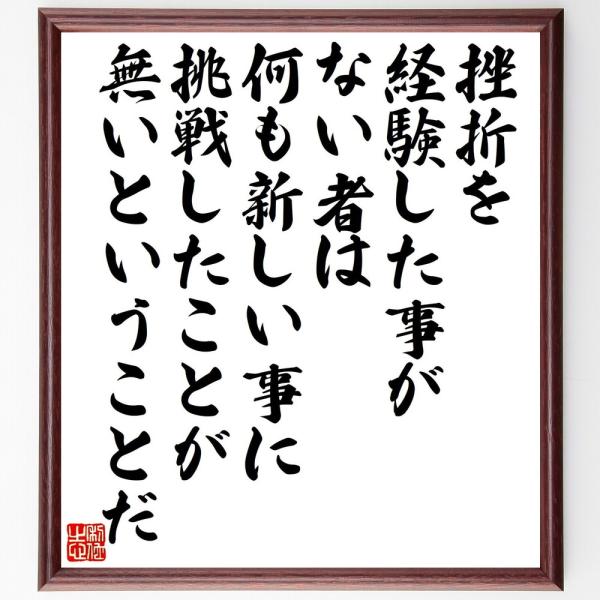 挫折を
経験した事が
ない者は
何も新しい事に
挑戦したことが
無いということだ